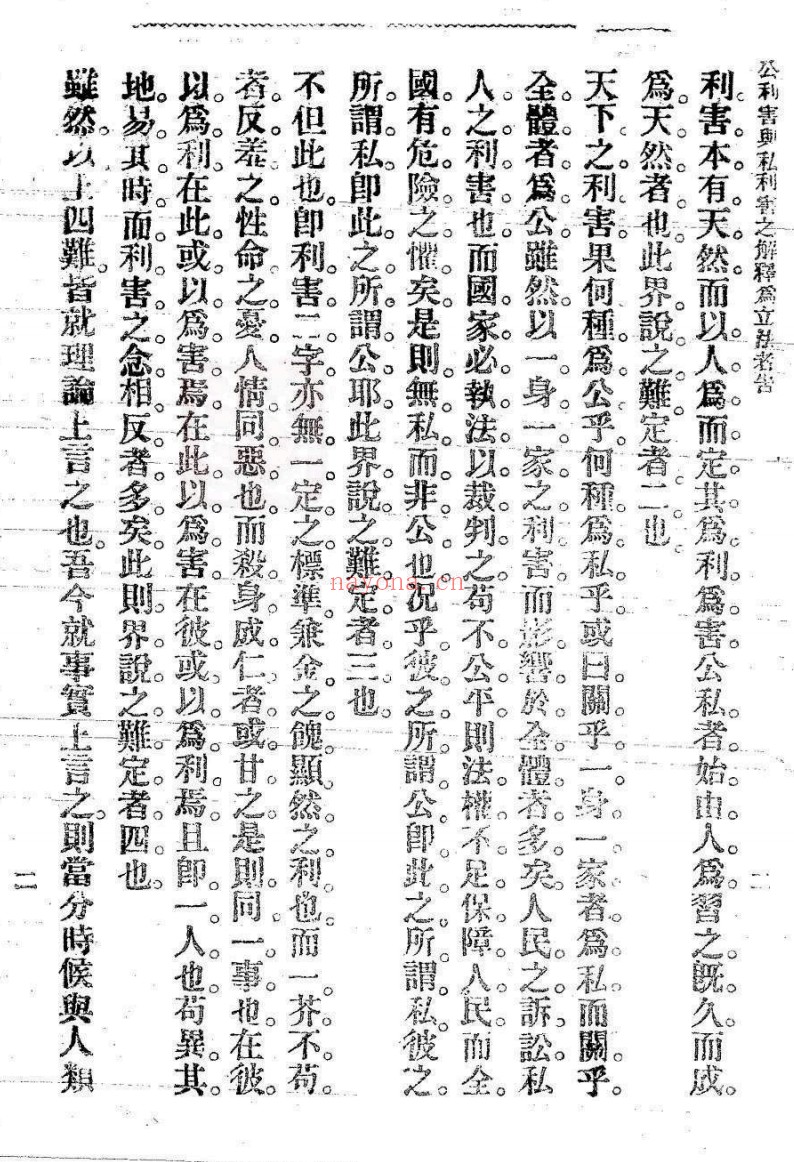 公利害與私利害之解釋爲立法者告
二
利害本有天然而以人爲而定其爲利爲害公私者始由人爲習之既久而成。
爲天然者也此界說之難定者二也
天下之利害果何種爲公乎何種爲私乎或曰關乎一身一家者爲私而關乎。
全體者爲公雖然以一身一家之利害而影響於全體者多矣人民之訴訟私
人之利害也而國家必執法以裁判之苟不公平則法權不足保障人民而全。
國有危險之懼矣是則無私而非公也況乎彼之所謂公卽此之所謂私彼之。
所謂私卽此之所謂公耶此界說之難定者三也。
不但此也卽利害二字亦無一定之標準兼金之餽顯然之利也而一芥不苟。
者反羞之性命之憂人情同惡也而殺身成仁者或甘之是則同一事也在彼。
以爲利在此或以爲害焉在此以爲害在彼或以爲利焉且卽一人也苟異其。
地易其時而利害之念相反者多矣此則界說之難定者四也。
雖然以上四難皆就理論上言之也吾今就事實上言之則當分時候與人類
二
nayona.cn